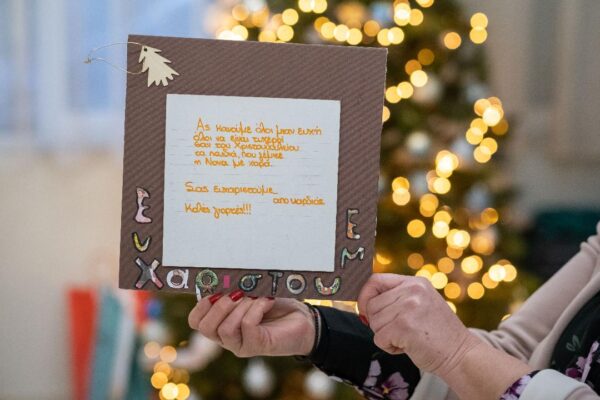 Ας κάνουμε όλοι μιαν ευχή
όλοι να είναι τυχεροί
σαν του Χριστουγέννου
τα παιδιά, που γέμισε
η Νονά με χαρά.
Σας ευχαριστούμε
από καρδιάς
Καλές γιορτές!!!
Ευχαριστουμε